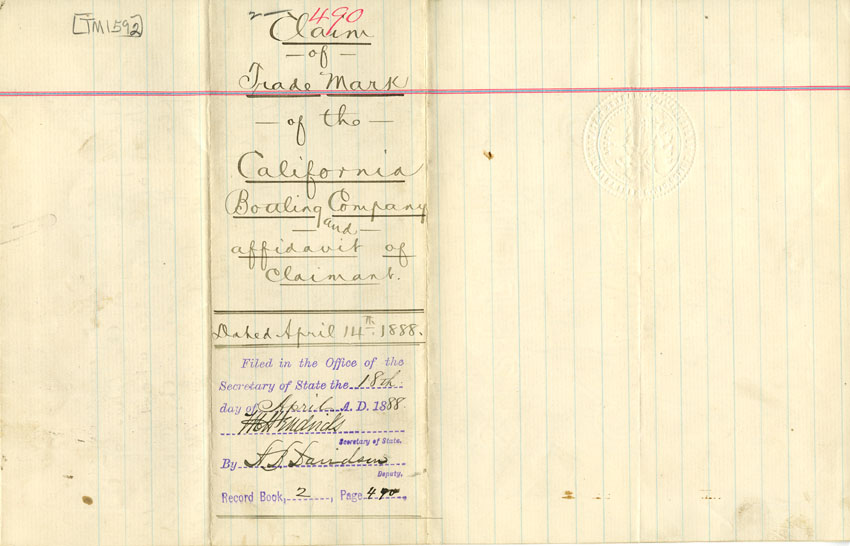 [TM1592]
2 - 490
Claim
- of -
Trade Mark
- of the -
California
Bottling Company
- and -
affidavit of
Claimant.
Dated April 14th 1888.
Filed in the Office of the
Secretary of State the 18th
day of April A. D. 1888
W C Hendricks
Secretary of State.
By
Davidson
Deputy.
Record Book, 2, Page 490,